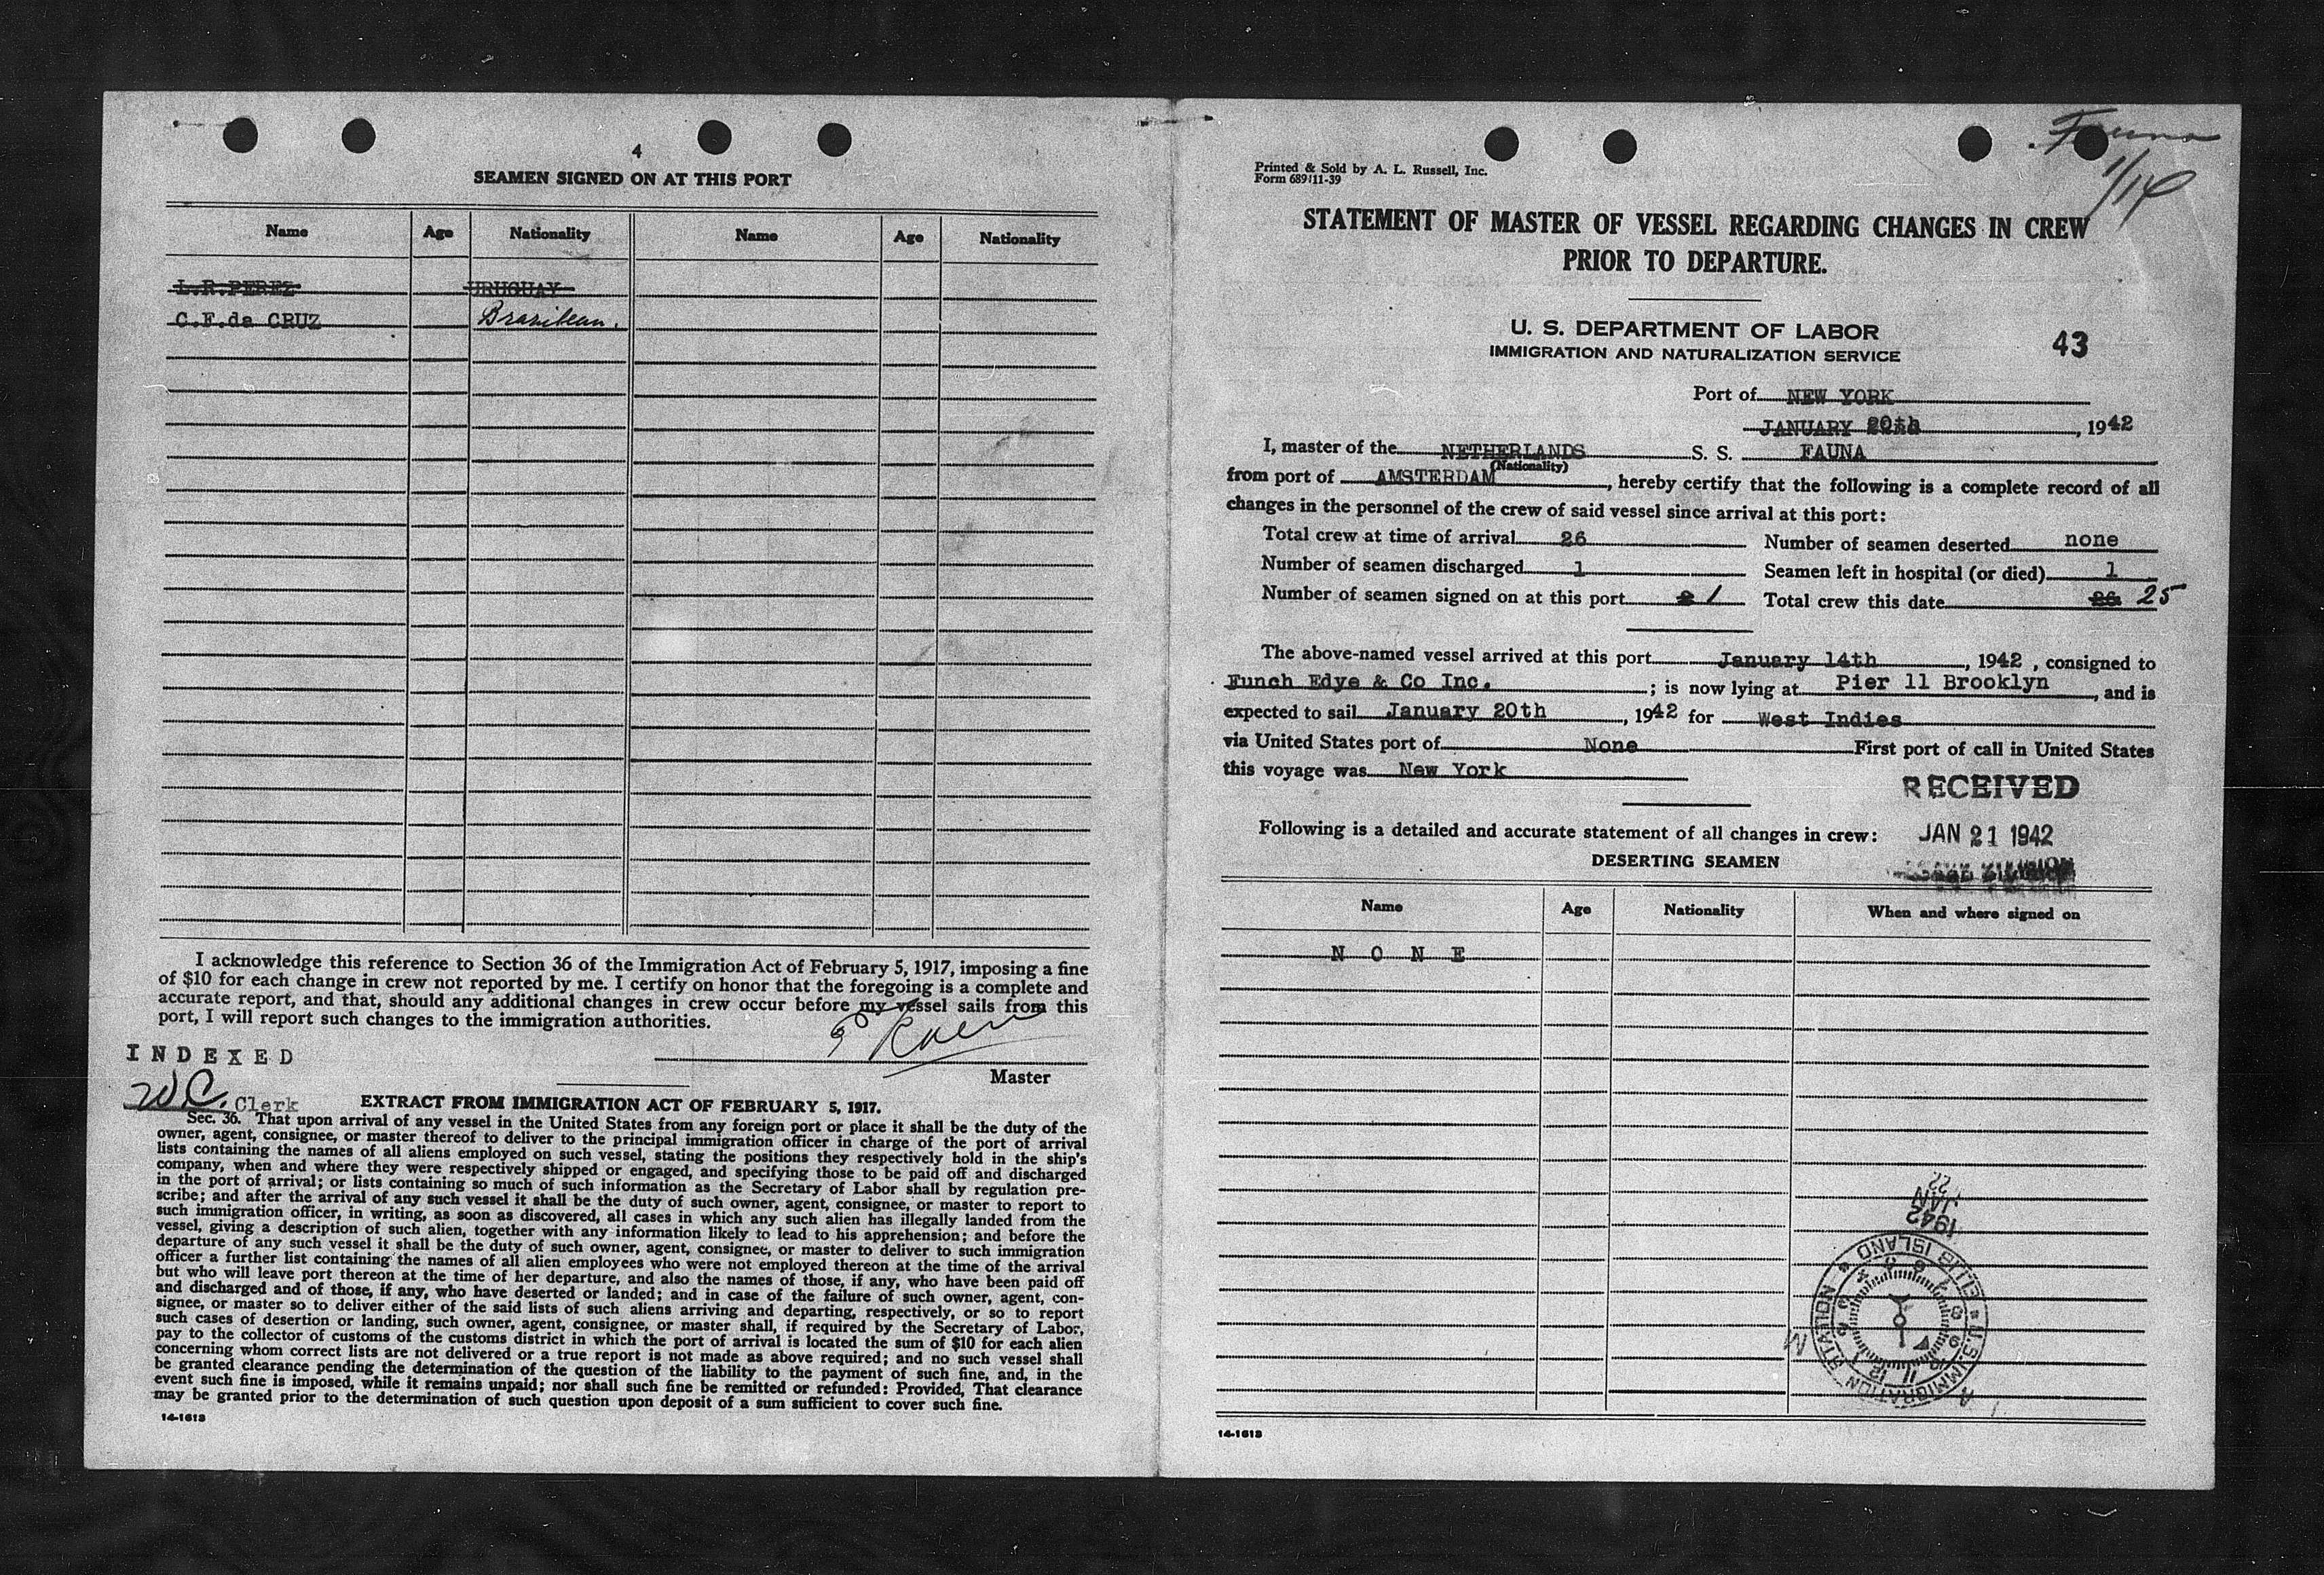 4
SEAMEN SIGNED ON AT THIS PORT
Name Age Nationality Name Age Nationality
L.R.PEREZ URUGUAY
C.F.da CRUZ Brazilean.
I acknowledge this reference to Section 36 of the Immigration Act of February 5, 1917, imposing a fine
of $10 for each change in crew not reported by me. I certify on honor that the foregoing is a complete and
accurate report, and that, should any additional changes in crew occur before my vessel sails from this
port, I will report such changes to the immigration authorities.
INDEXED
Master
W.C. Clerk
EXTRACT FROM IMMIGRATION ACT OF FEBRUARY 5, 1917.
Sec. 36. That upon arrival of any vessel in the United States from any foreign port or place it shall be the duty of the
owner, agent, consignee, or master thereof to deliver to the principal immigration officer in charge of the port of arrival
lists containing the names of all aliens employed on such vessel, stating the positions they respectively hold in the ship's
company, when and where they were respectively shipped or engaged, and specifying those to be paid off and discharged
in the port of arrival; or lists containing so much of such information as the Secretary of Labor shall by regulation pre-
scribe; and after the arrival of any such vessel it shall be the duty of such owner, agent, consignee, or master to report to
such immigration officer, in writing, as soon as discovered, all cases in which any such alien has illegally landed from the
vessel, giving a description of such alien, together with any information likely to lead to his apprehension; and before the
departure of any such vessel it shall be the duty of such owner, agent, consignee, or master to deliver to such immigration
officer a further list containing the names of all alien employees who were not employed thereon at the time of the arrival
but who will leave port thereon at the time of her departure, and also the names of those, if any, who have been paid off
and discharged and of those, if any, who have deserted or landed; and in case of the failure of such owner, agent, con-
signee, or master so to deliver either of the said lists of such aliens arriving and departing, respectively, or so to report
such cases of desertion or landing, such owner, agent, consignee, or master shall, if required by the Secretary of Labor,
pay to the collector of customs of the customs district in which the port of arrival is located the sum of $10 for each alien
concerning whom correct lists are not delivered or a true report is not made as above required; and no such vessel shall
be granted clearance pending the determination of the question of the liability to the payment of such fine, and, in the
event such fine is imposed, while it remains unpaid; nor shall such fine be remitted or refunded: Provided, That clearance
may be granted prior to the determination of such question upon deposit of a sum sufficient to cover such fine.
14-1613
Fauna
1/14
Printed & Sold by A. L. Russell, Inc.
Form 689 11-39
STATEMENT OF MASTER OF VESSEL REGARDING CHANGES IN CREW
PRIOR TO DEPARTURE.
U. S. DEPARTMENT OF LABOR
IMMIGRATION AND NATURALIZATION SERVICE
43
Port of NEW YORK
JANUARY 20th, 1942
I, master of the NETHERLANDS S. S. FAUNA
(Nationality)
from port of AMSTERDAM, hereby certify that the following is a complete record of all
changes in the personnel of the crew of said vessel since arrival at this port:
Total crew at time of arrival 26 Number of seamen deserted none
Number of seamen discharged 1 Seamen left in hospital (or died) 1
Number of seamen signed on at this port 2 1 Total crew this date 26 25
The above-named vessel arrived at this port January 14th, 1942, consigned to
Funch Edye & Co Inc.; is now lying at Pier 11 Brooklyn, and is
expected to sail January 20th, 1942 for West Indies
via United States port of None First port of call in United States
this voyage was New York
RECEIVED
Following is a detailed and accurate statement of all changes in crew: JAN 21 1942
DESERTING SEAMEN
DIVISION
Name Age Nationality When and where signed on
NONE
22
JAN
1942
U.S. IMMIGRATION STATION ELLIS ISLAND
1 2 3 4 5 6 7 8 9 10 11 12
M
14-1613